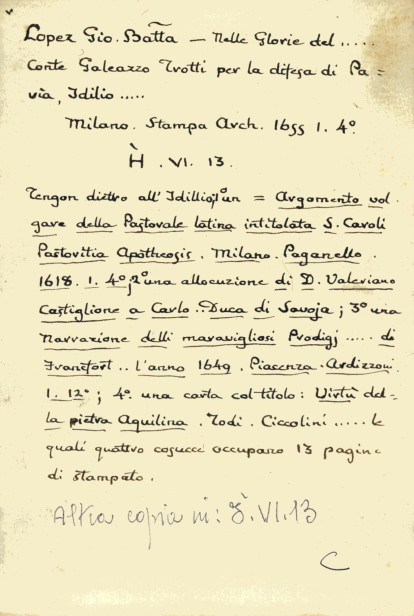 Lopez Gio. Batta — Nelle Glorie del .....
Conte Galeazzo Trotti per la difesa di Pa-
via, Idilio .....
Milano. Stampa Arch. 1655 1. 4°
H̀ . VI. 13.
Tengon dietro all'Idillio, 1° un = Argomento vol
gare della Pastorale latina intitolata S. Caroli
Pastoritia Apotheosis. Milano. Paganello.
1618. 1. 4°; 2° una allocuzione di D. Valeriano
Castiglione a Carlo.. Duca di Savoja; 3° una
Narrazione delli maravigliosi Prodigj ..... di
Francfort .. l'anno 1649. Piacenza. Ardizzoni.
1. 12°; 4° una carta col titolo: Virtù del-
la pietra Aquilina. Todi. Ciccolini ..... le
quali quattro cosucce occupano 13 pagine
di stampato.
Altra copia in: Z̀. VI. 13
C